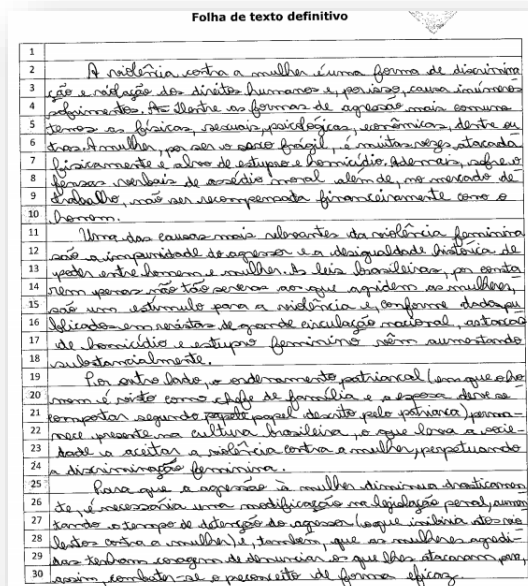 Folha de texto definitivo
1
2 A violência contra a mulher é uma forma de discrimina
3 ção e violação dos direitos humanos e, por isso, causa inúmeros
4 sofrimentos. As dentre as formas de agressão mais comuns
5 temos as físicas, sexuais, psicológicas, econômicas, dentre ou
6 tras. A mulher, por ser o sexo frágil, é muitas vezes atacada
7 fisicamente e alvo de estupro e homicídio. Ademais, sofre o
8 fensas verbais de assédio moral além de, no mercado de
9 trabalho, não ser recompensada financeiramente como o
10 homem.
11 Uma das causas mais relevantes da violência feminina
12 são a impunidade do agressor e a desigualdade histórica de
13 poder entre homem e mulher. As leis brasileiras, por conta
14 rem penas não tão severas ao que agridem as mulheres,
15 são um estímulo para a violência e, conforme dados pu
16 blicados em revistas de grande circulação nacional, as taxas
17 de homicídio e estupro feminino vêm aumentando
18 substancialmente.
19 Por outro lado, o ordenamento patriarcal (em que o ho
20 mem é visto como chefe de família e a esposa deve se
21 comportar segundo papel descrito pelo patriarca) perma-
22 nece presente na cultura brasileira, o que leva a socie-
23 dade a aceitar a violência contra a mulher, perpetuando
24 a discriminação feminina.
25 Para que a agressão à mulher diminua drasticamen
26 te, é necessária uma modificação na legislação penal, aumen
27 tando o tempo de detenção do agressor (o que inibiria atos vio
28 lentos contra a mulher) e, também, que as mulheres agredi-
29 das tenham coragem de denunciar os que lhes atacaram para,
30 assim, combater-se o preconceito de forma eficaz.